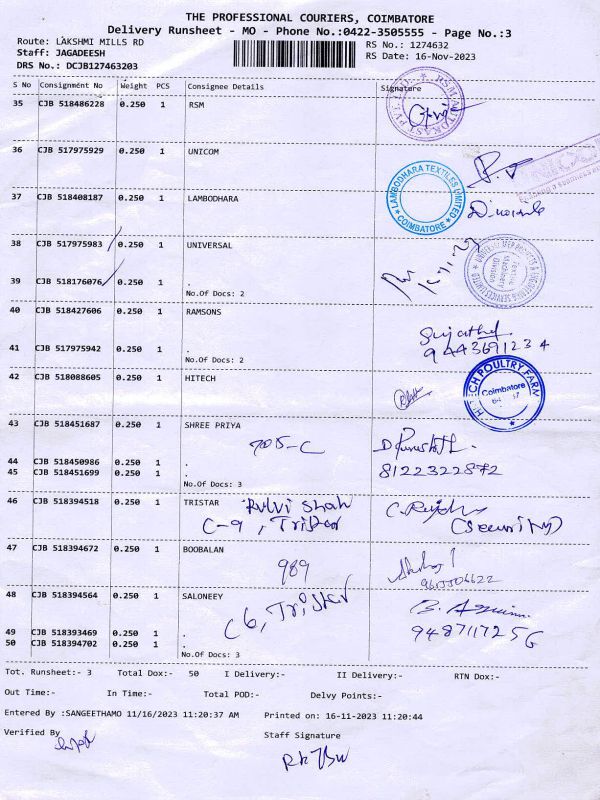 THE PROFESSIONAL COURIERS, COIMBATORE
Delivery Runsheet - MO - Phone No.:0422-3505555 - Page No.:3
Route: LAKSHMI MILLS RD RS No.: 1274632
Staff: JAGADEESH RS Date: 16-Nov-2023
DRS No.: DCJB127463203
S No Consignment No Weight PCS Consignee Details Signature
35 CJB 518486228 0.250 1 RSM
36 CJB 517975929 0.250 1 UNICOM
37 CJB 518408187 0.250 1 LAMBODHARA
LAMBODHARA TEXTILES LIMITED
COIMBATORE
38 CJB 517975983 0.250 1 UNIVERSAL
Textile
Machinery
Division
39 CJB 518176076 0.250 1 .
No.Of Docs: 2
40 CJB 518427606 0.250 1 RAMSONS
Sujatha
9443691234
41 CJB 517975942 0.250 1 .
No.Of Docs: 2
42 CJB 518088605 0.250 1 HITECH
HITECH POULTRY FARM
Coimbatore
43 CJB 518451687 0.250 1 SHREE PRIYA
705-C
44 CJB 518450986 0.250 1 .
8122322872
45 CJB 518451699 0.250 1 .
No.Of Docs: 3
46 CJB 518394518 0.250 1 TRISTAR
Shah
C-9, Tristar (Security)
47 CJB 518394672 0.250 1 BOOBALAN
989
48 CJB 518394564 0.250 1 SALONEEY
C6, Tristar
49 CJB 518393469 0.250 1 .
9487117256
50 CJB 518394702 0.250 1 .
No.Of Docs: 3
Tot. Runsheet:- 3 Total Dox:- 50 I Delivery:- II Delivery:- RTN Dox:-
Out Time:- In Time:- Total POD:- Delvy Points:-
Entered By :SANGEETHAMO 11/16/2023 11:20:37 AM Printed on: 16-11-2023 11:20:44
Verified By Staff Signature